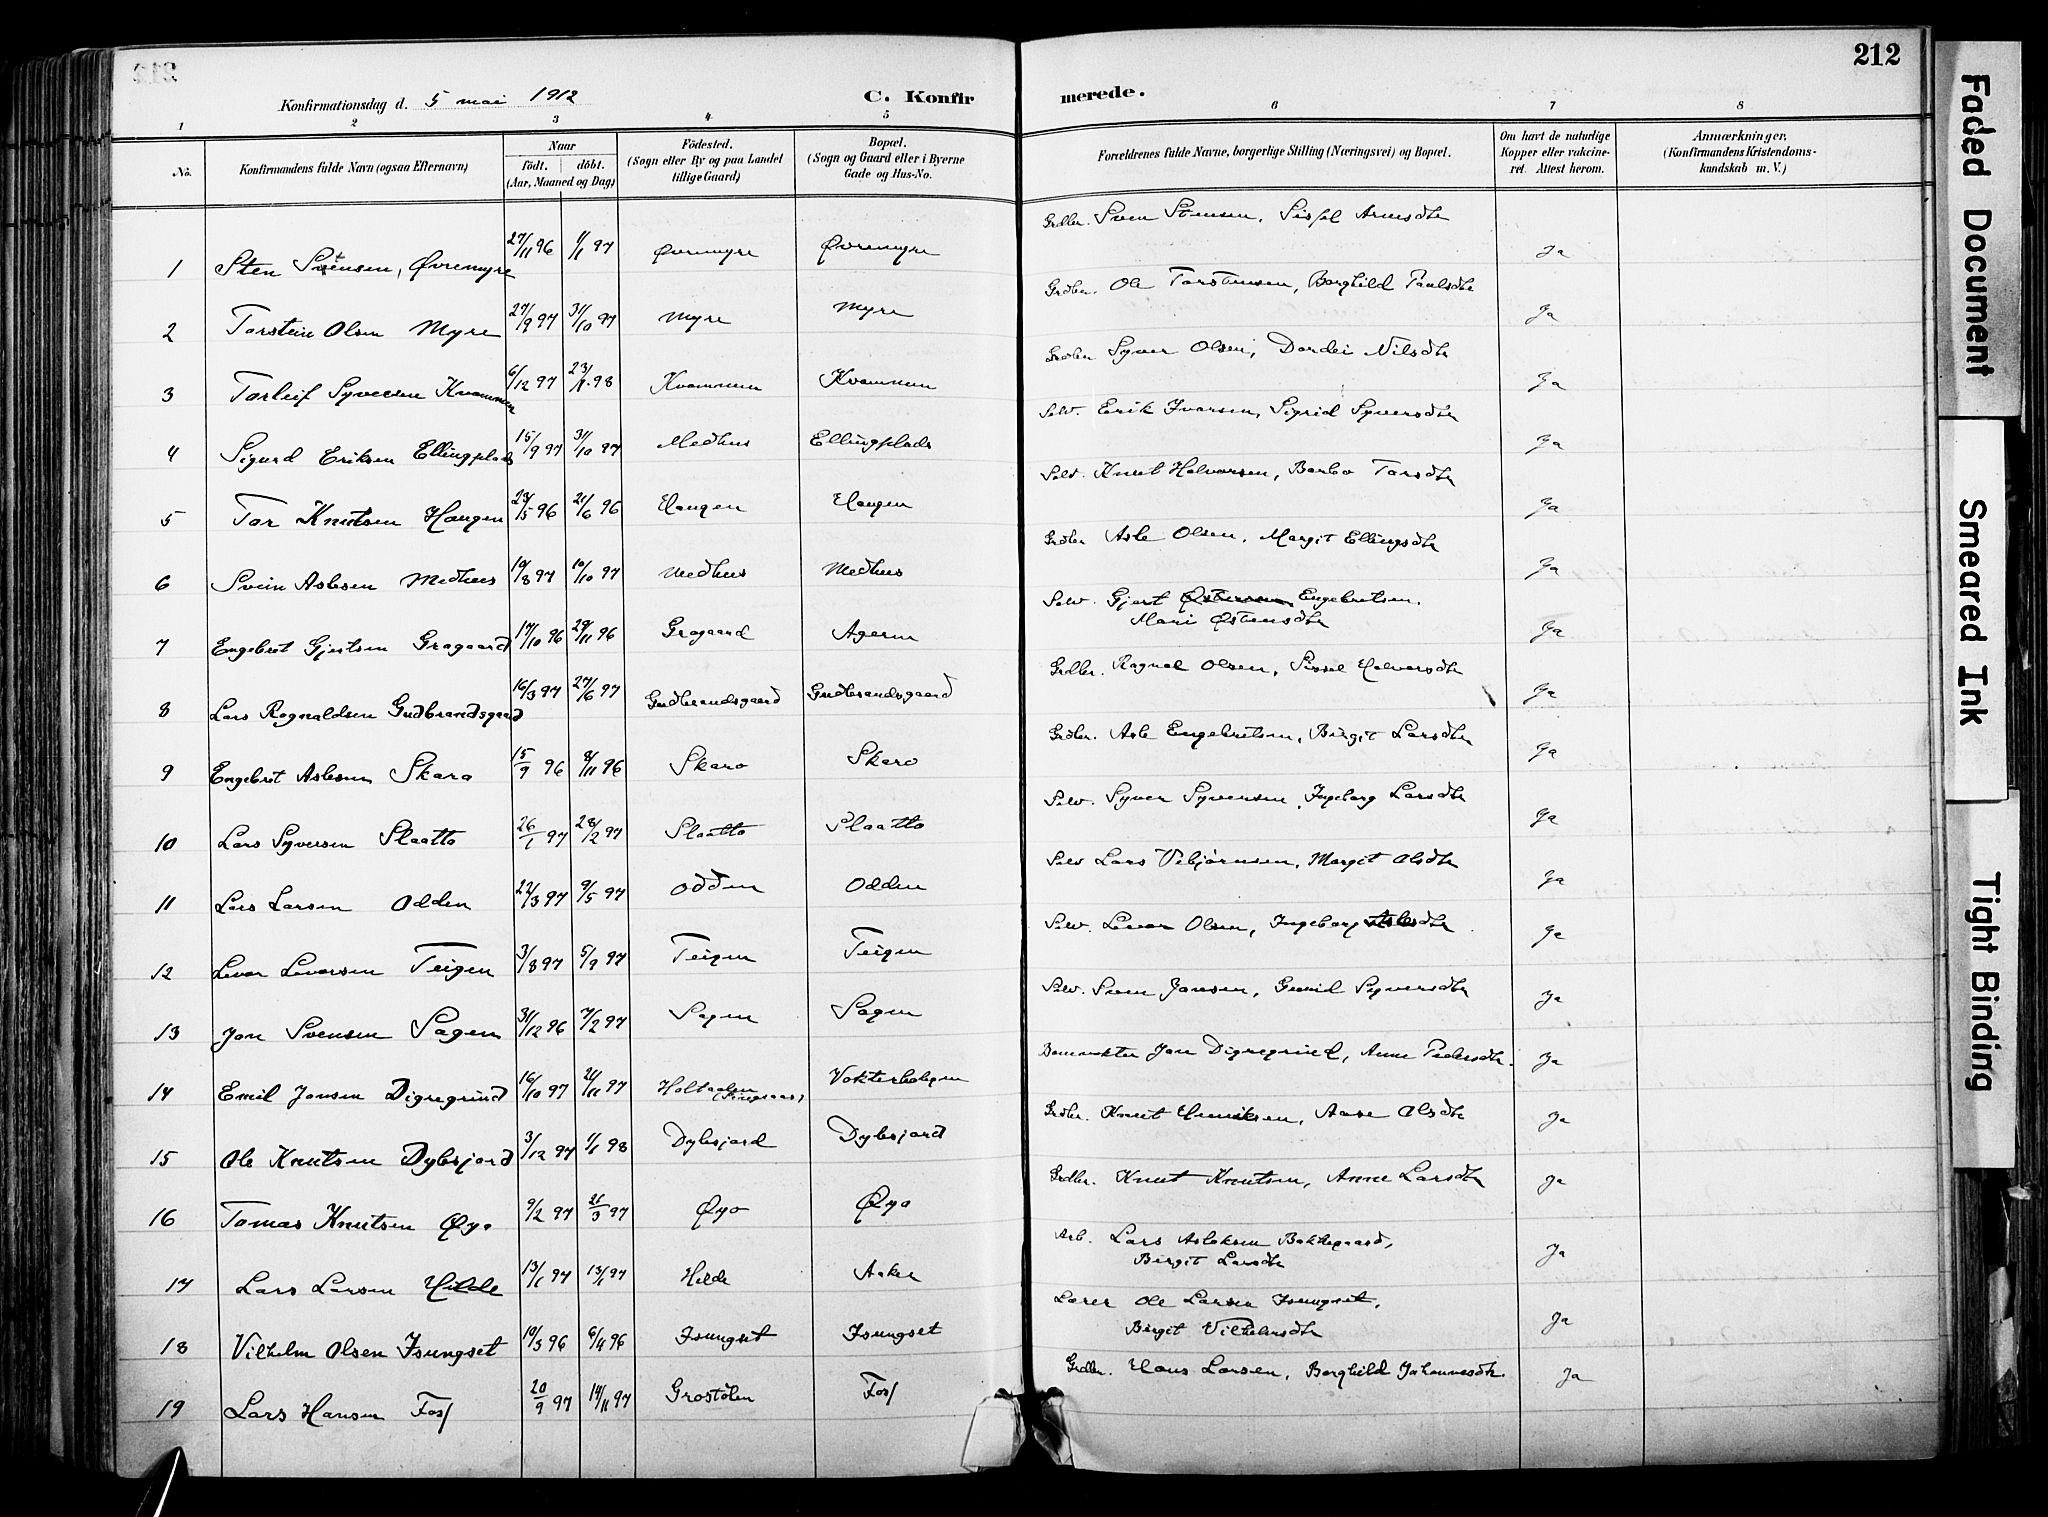 212
Konfirmationsdag d. 5 mai 1912
C. Konfirmerede.
1 2 3 4 5 6 7 8
No.
Konfirmandens fulde Navn (ogsaa Efternavn)
Naar
födt. döbt.
(Aar, Maaned og Dag)
Födested.
(Sogn eller By og paa Landet
tillige Gaard)
Bopæl.
(Sogn og Gaard eller i Byerne
Gade og Hus-No.
Forældrenes fulde Navne, borgerlige Stilling (Næringsvei) og Bopæl.
Om havt de naturlige
Kopper eller vakcine-
ret. Attest herom.
Anmærkninger.
(Konfirmandens Kristendoms-
kundskab m. V.)
1 Sten Svensen, Øvremyre 27/11 96 1/1 97 Øvremyre Øvremyre Grdbr. Sven Stensen, Sissel Arnesdtr Ja
2 Torstein Olsen Myre 27/9 97 31/10 97 Myre Myre Grdbr. Ole Torstensen, Borghild Paulsdtr Ja
3 Torleif Syversen Kvammen 6/12 97 23/1 98 Kvammen Kvammen Grdbr Syver Olsen, Dordei Nilsdtr Ja
4 Sigurd Eriksen Ellingplads 15/9 97 31/10 97 Medhus Ellingplads Selv. Erik Ivarsen, Sigrid Syversdtr Ja
5 Tor Knutsen Haugen 23/5 96 21/6 96 Haugen Haugen Selv. Knut Halvorsen, Barbo Torsdtr Ja
6 Svein Aslesen Medhus 10/8 97 10/10 97 Medhus Medhus Grdbr Asle Olsen, Margit Ellingsdtr Ja
7 Engebret Gjertsen Gragaard 17/10 96 29/11 96 Gragaard Ageren Selv. Gjert Engebretsen,
Mari Østensdtr Ja
8 Lars Ragnaldsen Gudbrandsgaard 16/3 97 27/6 97 Gudbrandsgaard Gudbrandsgaard Grdbr. Ragnal Olsen, Sissel Halvorsdtr Ja
9 Engebret Aslesen Skaro 15/9 96 8/11 96 Skaro Skaro Grdbr. Asle Engebretsen, Birgit Larsdtr Ja
10 Lars Syversen Slaatto 26/1 97 28/2 97 Slaatto Slaatto Selv. Syver Syversen, Ingeborg Larsdtr Ja
11 Lars Larsen Odden 22/3 97 9/5 97 Odden Odden Selv Lars Vebjørnsen, Margit Olsdtr Ja
12 Levor Levorsen Teigen 3/8 97 5/9 97 Teigen Teigen Selv. Levor Olsen, Ingeborg Aslesdtr Ja
13 Jon Svensen Sagen 31/12 96 7/2 97 Sagen Sagen Selv. Sven Jonsen, Gunild Syversdtr Ja
14 Emil Jonsen Digregrind 16/10 97 21/11 97 Holtaalen (Singsaas) Vokterboligen Banevokter Jon Digregrind, Anne Pedersdtr. Ja
15 Ole Knutsen Dybsjord 3/12 97 1/1 98 Dybsjord Dybsjord Grdbr. Knut Henriksen, Aase Olsdtr Ja
16 Tomas Knutsen Øyo 9/2 97 21/3 97 Øyo Øyo Grdbr. Knut Knutsen, Anne Larsdtr Ja
17 Lars Larsen Hilde 13/1 97 13/1 97 Hilde Aaker Arb. Lars Aslaksen Bakkegaard,
Birgit Larsdtr Ja
18 Vilhelm Olsen Isungset 10/3 96 6/4 96 Isungset Isungset Lærer Ole Larsen Isungset,
Birgit Vilhelmsdtr Ja
19 Lars Hansen Foss 20/9 97 14/11 97 Grostölen Foss Grdbr. Hans Larsen, Borghild Johannesdtr. Ja
Faded Document
Smeared Ink
Tight Binding